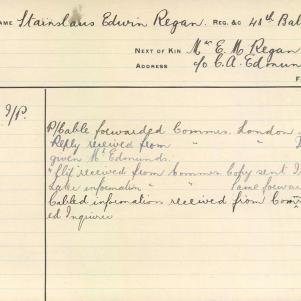 NAME Stainslaus Edwin Regan. REG. &C 48th Bat
NEXT OF KIN Mrs E. M. Regan
ADDRESS c/o C. A. Edmun
F
P/Cable forwarded Commrs. London
Reply received from " "
given Mr Edmunds.
"Slip received from Commrs Copy sent I
Later information " " Same forwar
Cabled information received from Com
ed Inquirer